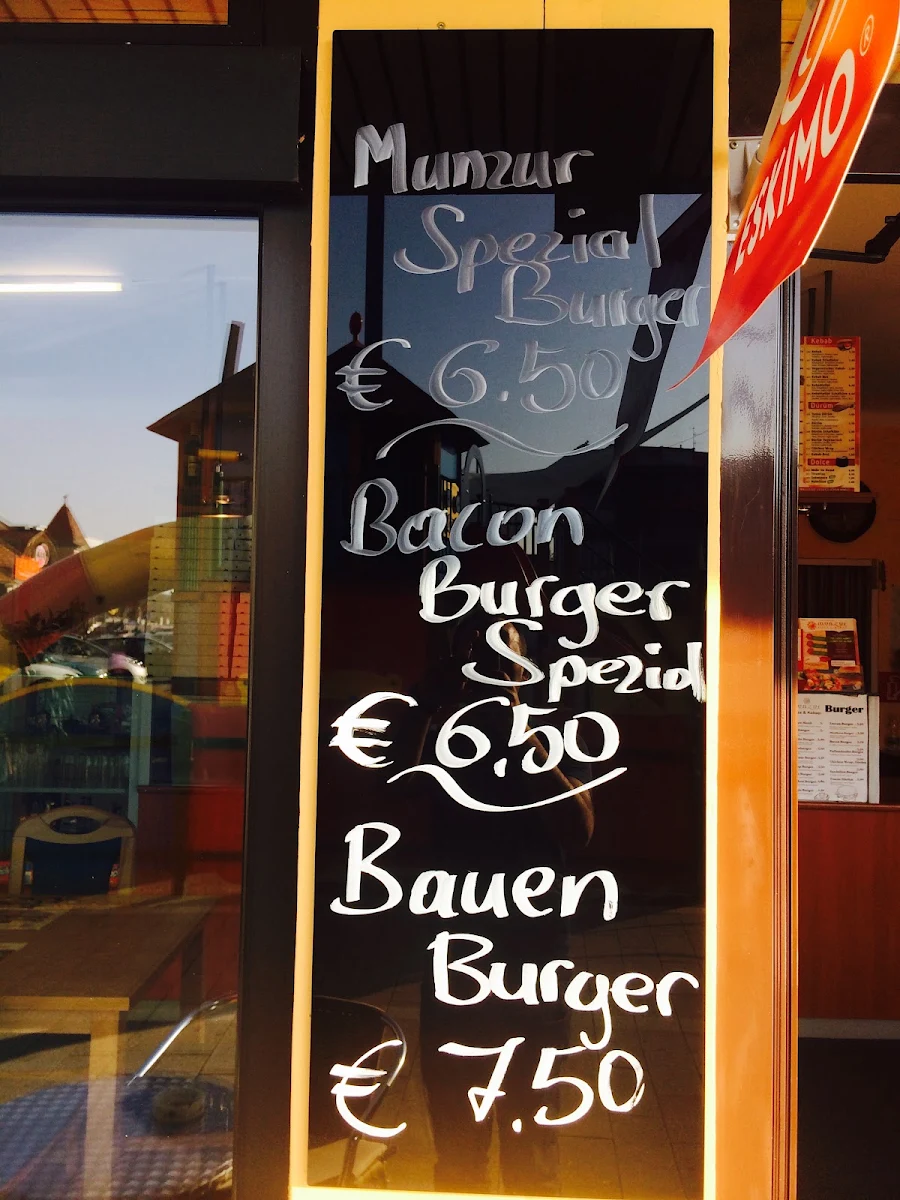 Munzur
Spezial
Burger
€ 6.50
Bacon
Burger
Spezial
€ 6.50
Bauen
Burger
€ 7.50
ESKIMO®
Kebab
Dürüm
Dolce
Burger